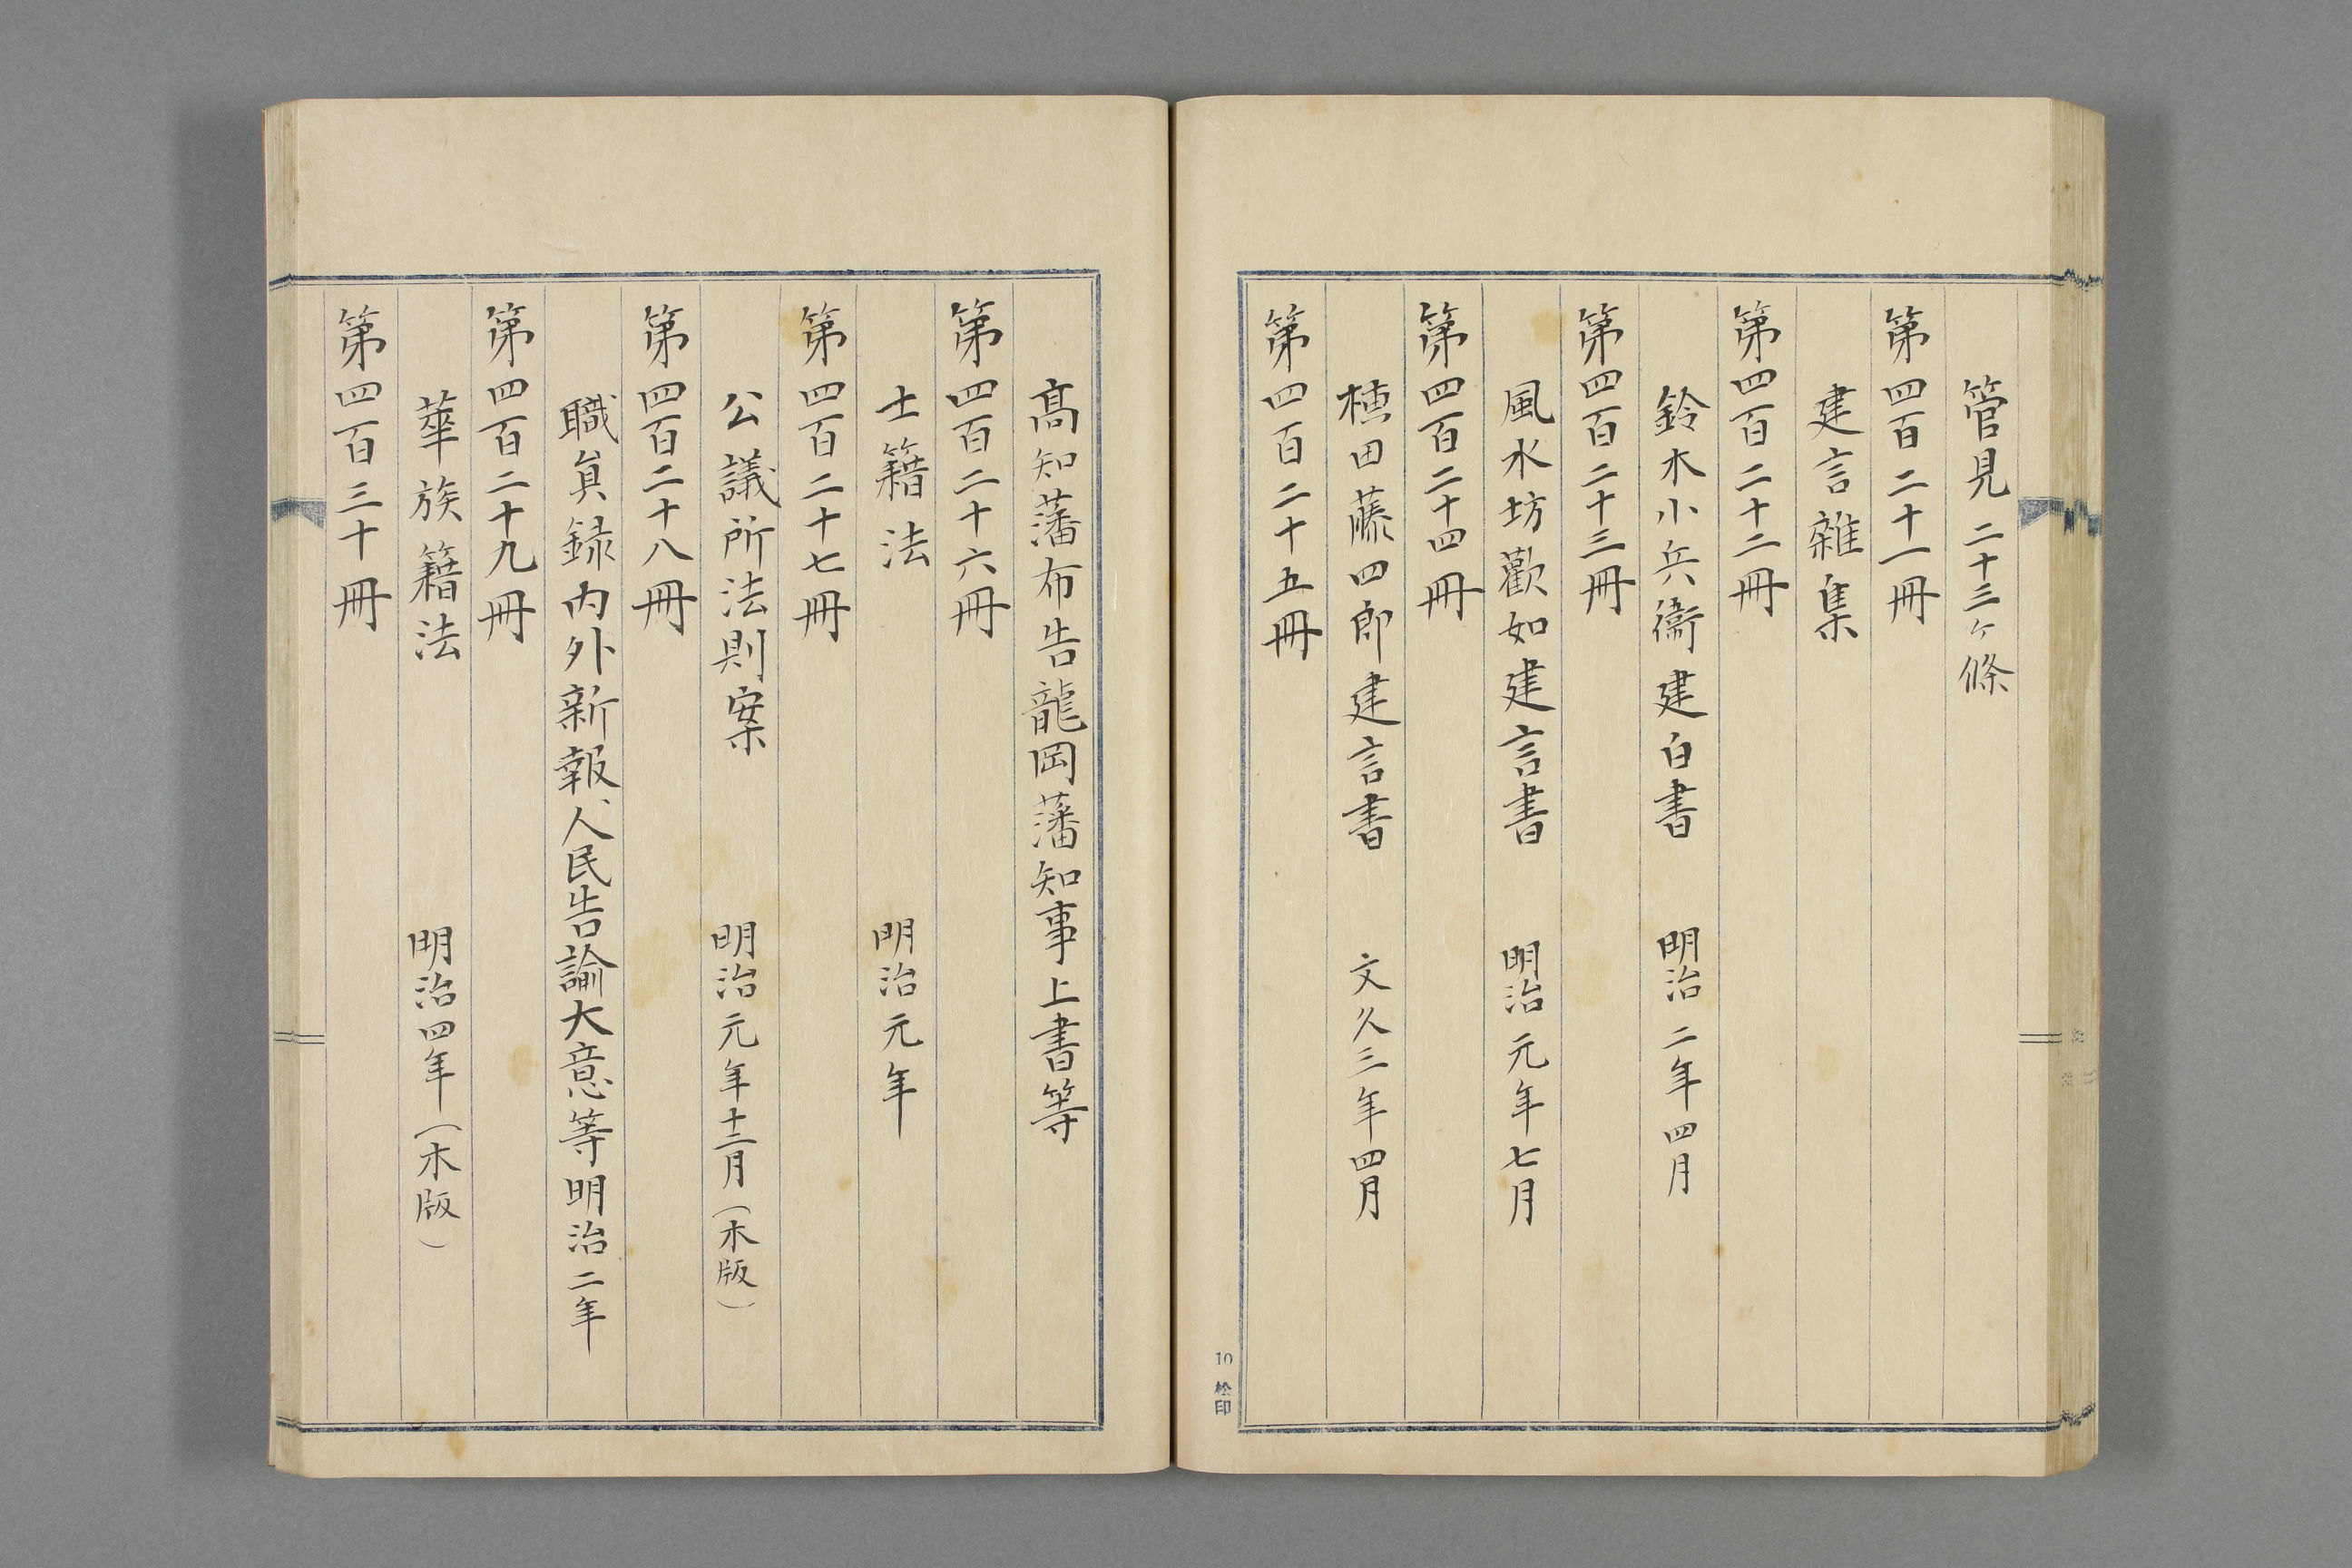 管見二十三ヶ條
第四百二十一冊
建言雜集
第四百二十二冊
鈴木小兵衞建白書　明治二年四月
第四百二十三冊
風水坊歡如建言書　明治元年七月
第四百二十四冊
植田藤四郎建言書　文久三年四月
第四百二十五冊
10 松印
高知藩布告龍岡藩知事上書等
第四百二十六冊
士籍法　明治元年
第四百二十七冊
公議所法則案　明治元年十二月（木版）
第四百二十八冊
職員録内外新報、人民告諭大意等明治二年
第四百二十九冊
華族籍法　明治四年（木版）
第四百三十冊